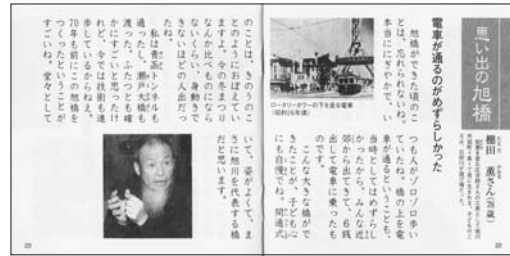 思い出の旭橋
棚田 薫さん(78歳)
電車が通るのがめずらしかった
旭橋ができた頃のこ
とは、忘れられないね。
本当ににぎやかで、い
ロータリータワーの下を走る電車
(昭和26年頃)
つも人がゾロゾロ歩い
ていたね。橋の上を電
車が通るということも、
当時としてはめずらし
かったから、みんな近
郊から出てきて、6銭
出して電車に乗ったも
のです。
こんな大きな橋がで
きたことが、子ども心
にも自慢でね。開通式
のことは、きのうのこ
とのようにおぼえてい
ますよ。今の冬まつり
なんか比べものになら
ないくらい、身動きで
きないほどの人出だっ
たね。
私は青函トンネルも
通ったし、瀬戸大橋も
渡った。ふたつとも確
かにすごいと思ったけ
れど、今では技術も進
歩しているからねえ。
70年も前にこの旭橋を
つくったということが
すごいね。堂々として
いて、姿がよくて、ま
さに旭川を代表する橋
だと思います。